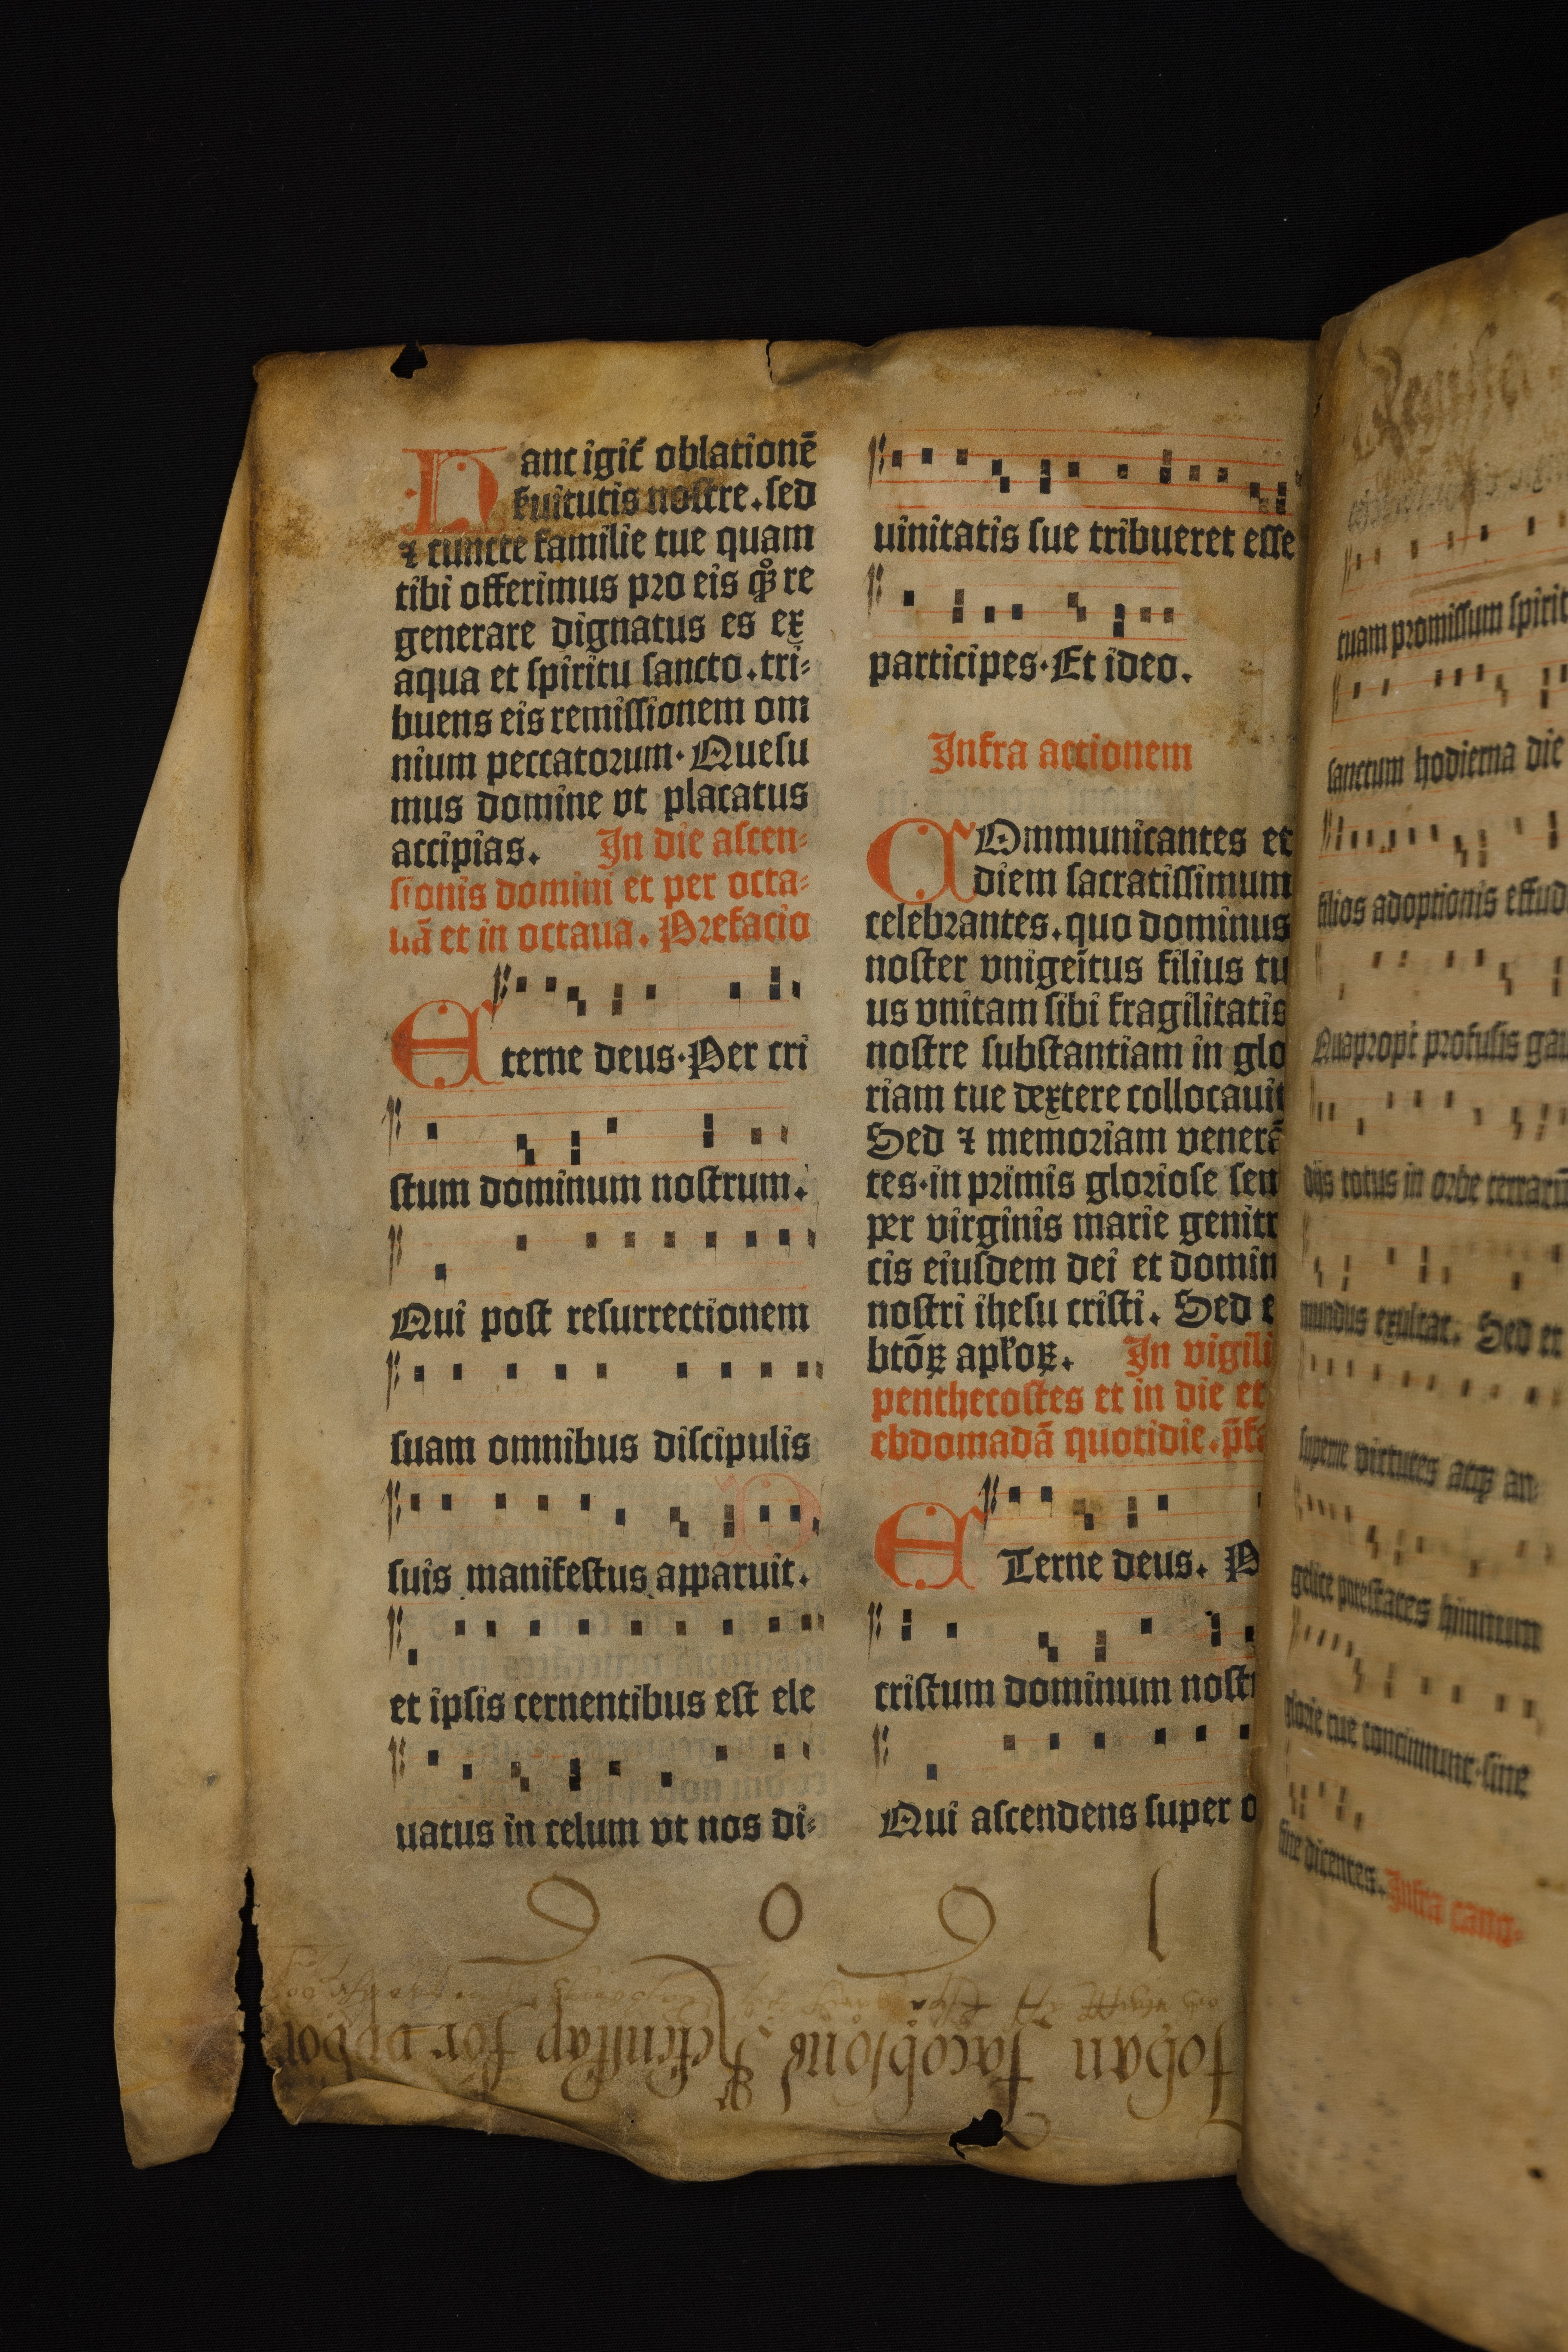 Hanc igit᷑ oblationē
ẜuitutis nostre. sed
⁊ cuncte familie tue quam
tibi offerimus pro eis qͦꝫ re
generare dignatus es ex
aqua et spiritu sancto. tri-
buens eis remissionem om
nium peccatorum. Quesu
mus domine vt placatus
accipias. In die ascen-
sionis domini et per octa-
uā et in octaua. Prefacio
Eterne deus. Per cri
stum dominum nostrum.
Qui post resurrectionem
suam omnibus discipulis
suis manifestus apparuit.
et ipsis cernentibus est ele
uatus in celum vt nos di-
uinitatis sue tribueret esse
participes. Et ideo.
Infra actionem
COmmunicantes et
diem sacratissimum
celebrantes. quo dominus
noster vnigeītus filius tu
us vnitam sibi fragilitatis
nostre substantiam in glo
riam tue dextere collocauit
Sed ⁊ memoriam venerā
tes. in primis gloriose sem
per virginis marie genitr
cis eiusdem dei et domin
nostri ihesu cristi. Sed e
btōꝝ apl'oꝝ. In vigili
penthecostes et in die et
ebdomadā quotidie. p̄fa
ETerne deus. P
cristum dominum nostr
Qui ascendens super o
1 6 0 6
Johan Jacobsons Rekenskap for
Register
tuam promissum spirit
sanctum hodierna die
filios adoptionis effud
Quapropt᷑ profusis gau
dijs totus in orbe terrarū
mundus exultat. Sed et
superne virtutes atqꝫ an-
gelice potestates himnum
glorie tue concinnunt. sine
fine dicentes. Infra cano-